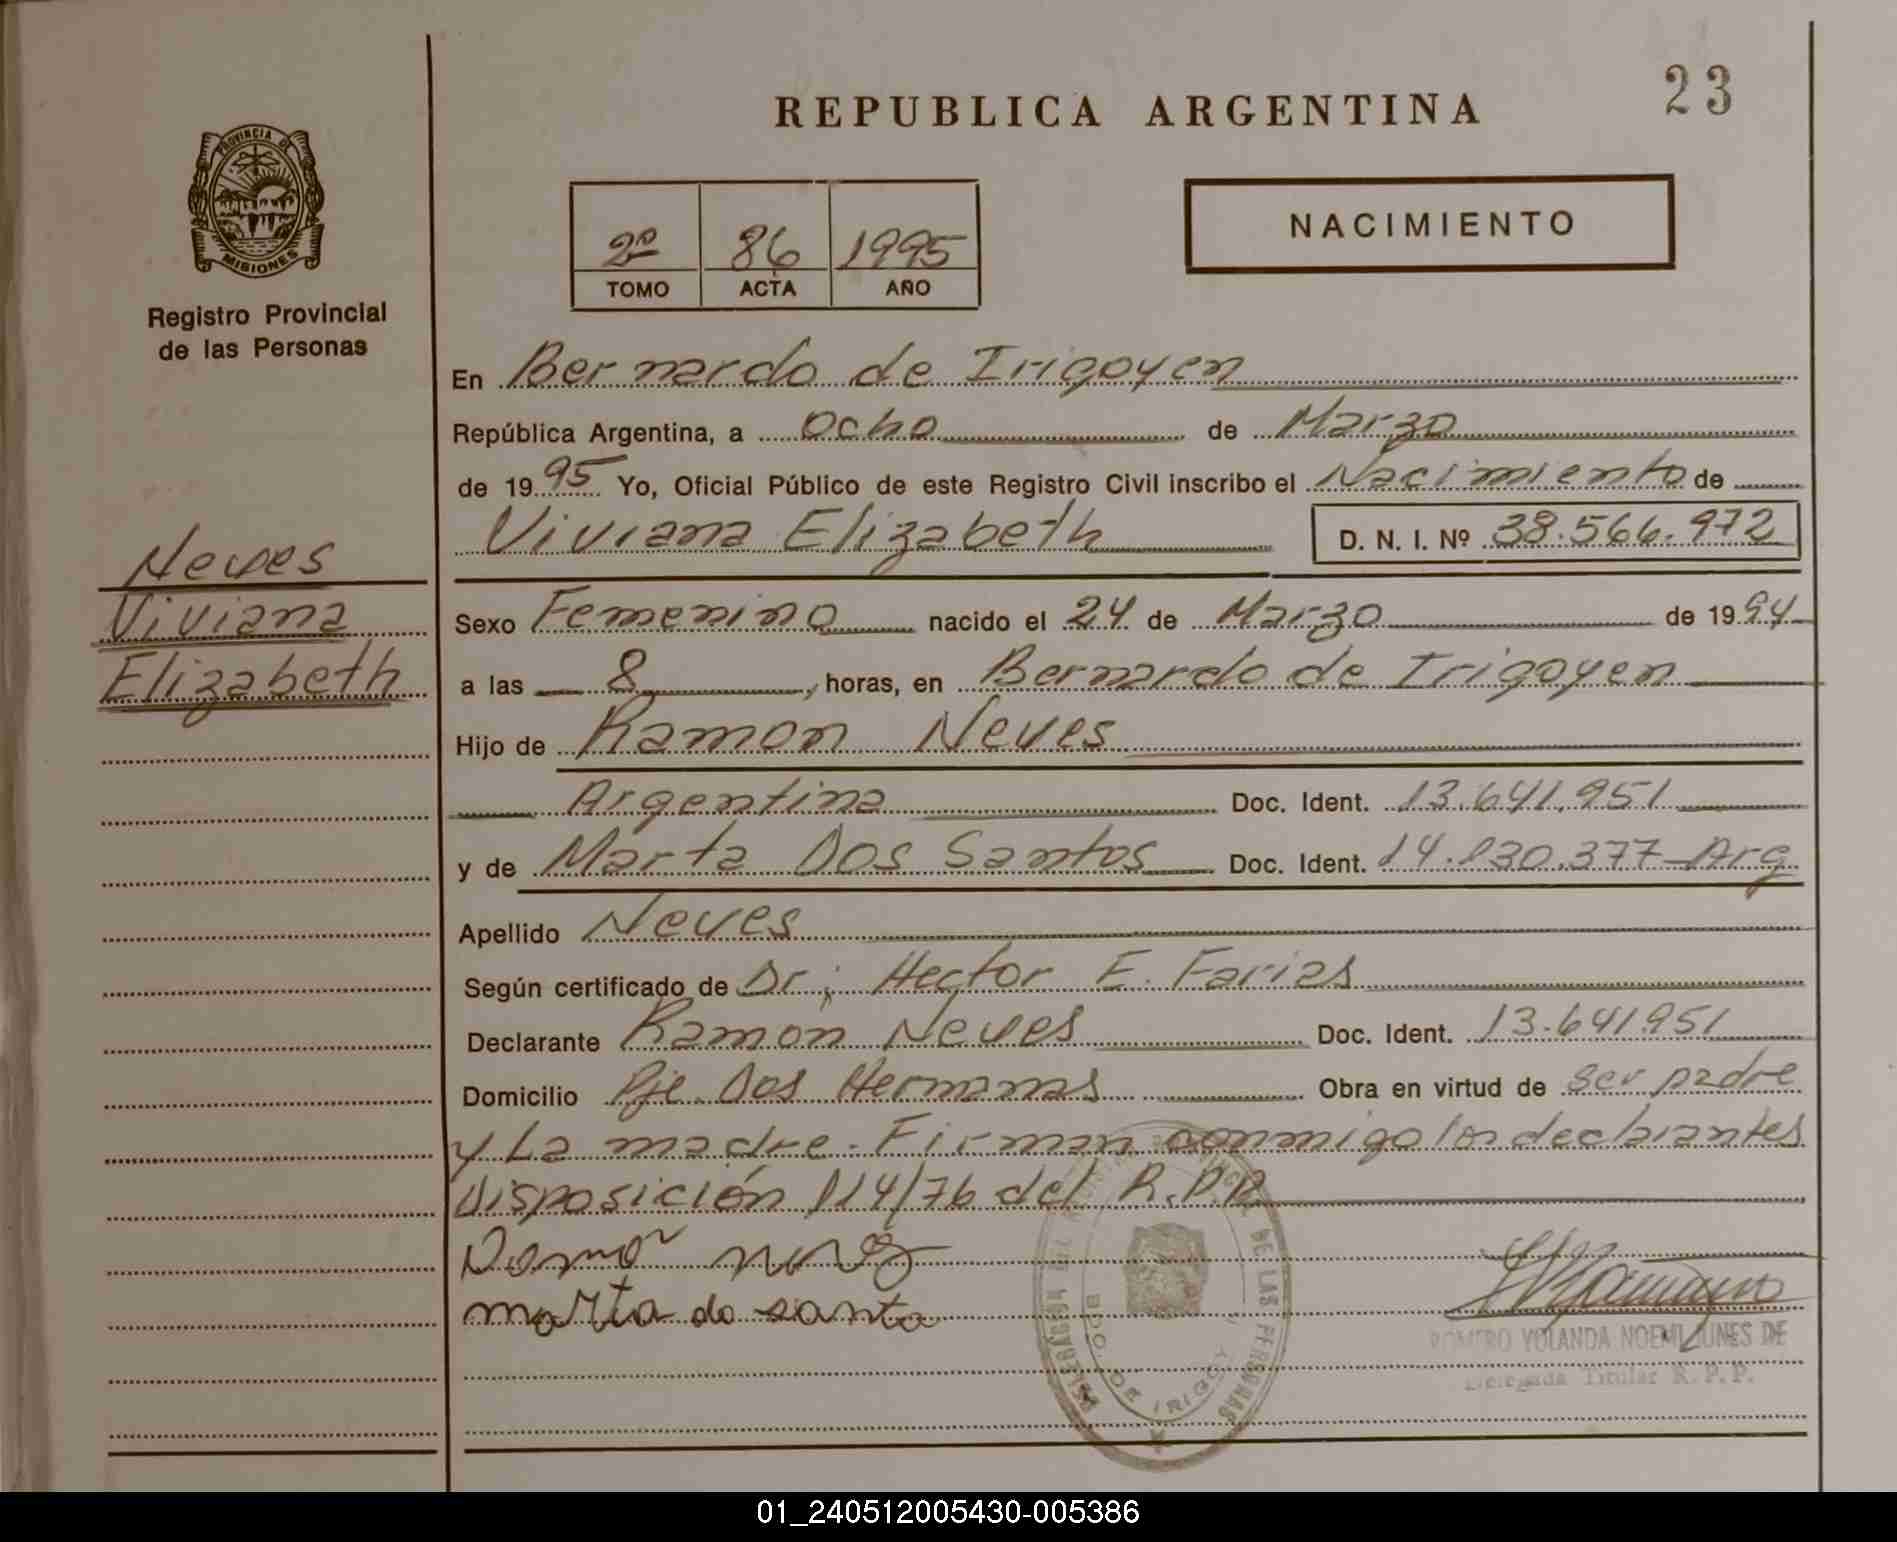 23
REPUBLICA ARGENTINA
PROVINCIA DE
MISIONES
Registro Provincial
de las Personas
2º 86 1995
TOMO ACTA AÑO
NACIMIENTO
En Bernardo de Irigoyen
República Argentina, a Ocho de Marzo
de 1995 Yo, Oficial Público de este Registro Civil inscribo el Nacimiento de
Viviana Elizabeth D. N. I. Nº 38.566.972
Neves
Viviana
Elizabeth
Sexo Femenino nacido el 24 de Marzo de 1994
a las 8, horas, en Bernardo de Irigoyen
Hijo de Ramon Neves
Argentina Doc. Ident. 13.641.951
y de Marta Dos Santos Doc. Ident. 14.130.377 Arg
Apellido Neves
Según certificado de Dr; Hector E. Farias
Declarante Ramon Neves Doc. Ident. 13.641951
Domicilio Pje. Dos Hermanas Obra en virtud de ser padre
y La madre. Firman conmigo los declarantes
Disposición 114/76 del R.P.P
marta do santo
DE LAS PERSONAS
BDO. DE IRIGOY
ROMERO YOLANDA NOEMI JUNES DE
Delegada Titular R. P. P.
01_240512005430-005386